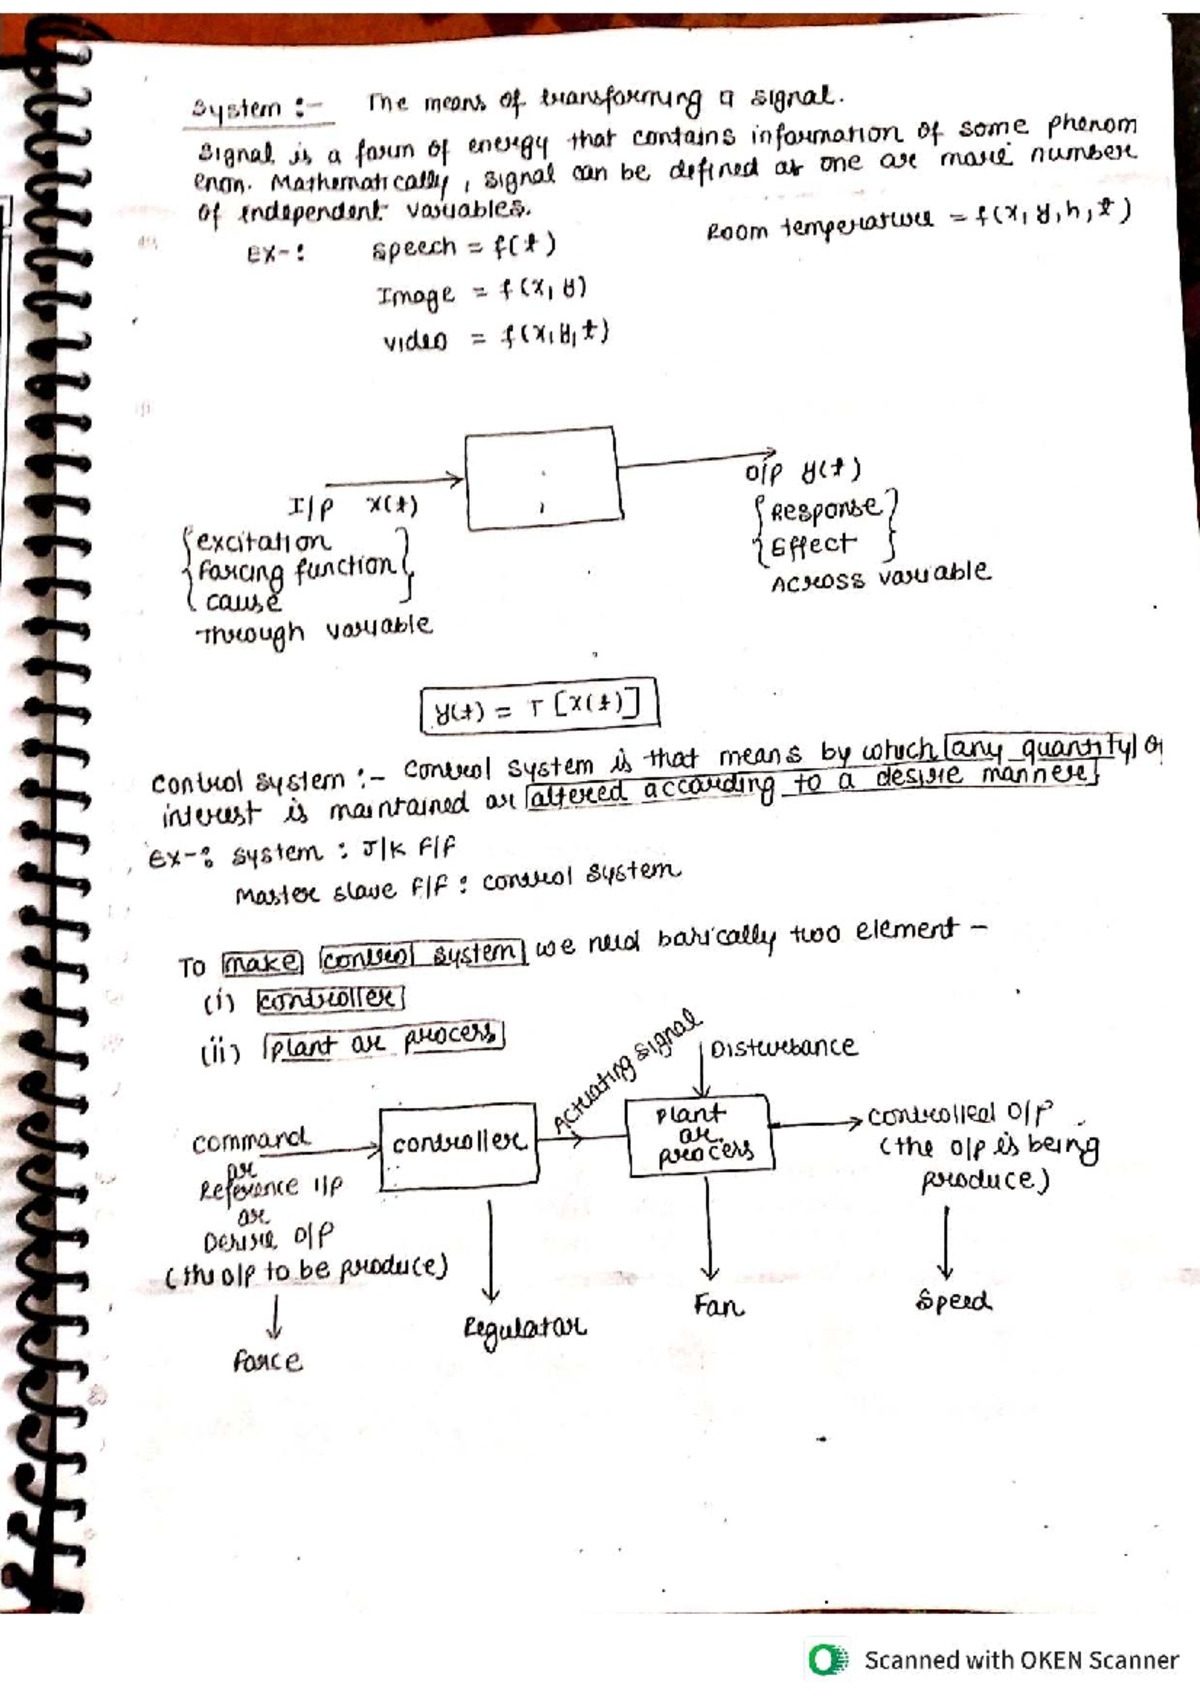 System :- The means of transforming a signal.
Signal is a form of energy that contains information of some phenom
enon. Mathematically, signal can be defined as one or more number
of independent variables.
Room temperature = f(x, y, h, t)
Ex-: Speech = f(t)
Image = f(x, y)
video = f(x, y, t)
I/p x(t)
O/p y(t)
{excitation
Forcing function
cause}
Through variable
{Response
Effect}
Across variable
y(t) = T [x(t)]
Control system :- Control system is that means by which any quantity of
interest is maintained or altered according to a desire manner
Ex-: System : J/K F/F
Master slave F/F : control system
To make control system we need basically two element -
(i) controller
(ii) plant or process
Actuating signal
Disturbance
Command
or
Reference i/p
or
Desire O/P
(the o/p to be produce)
controller
Plant
or
process
controlled O/P
(the o/p is being
produce)
Force
Regulator
Fan
Speed
Scanned with OKEN Scanner